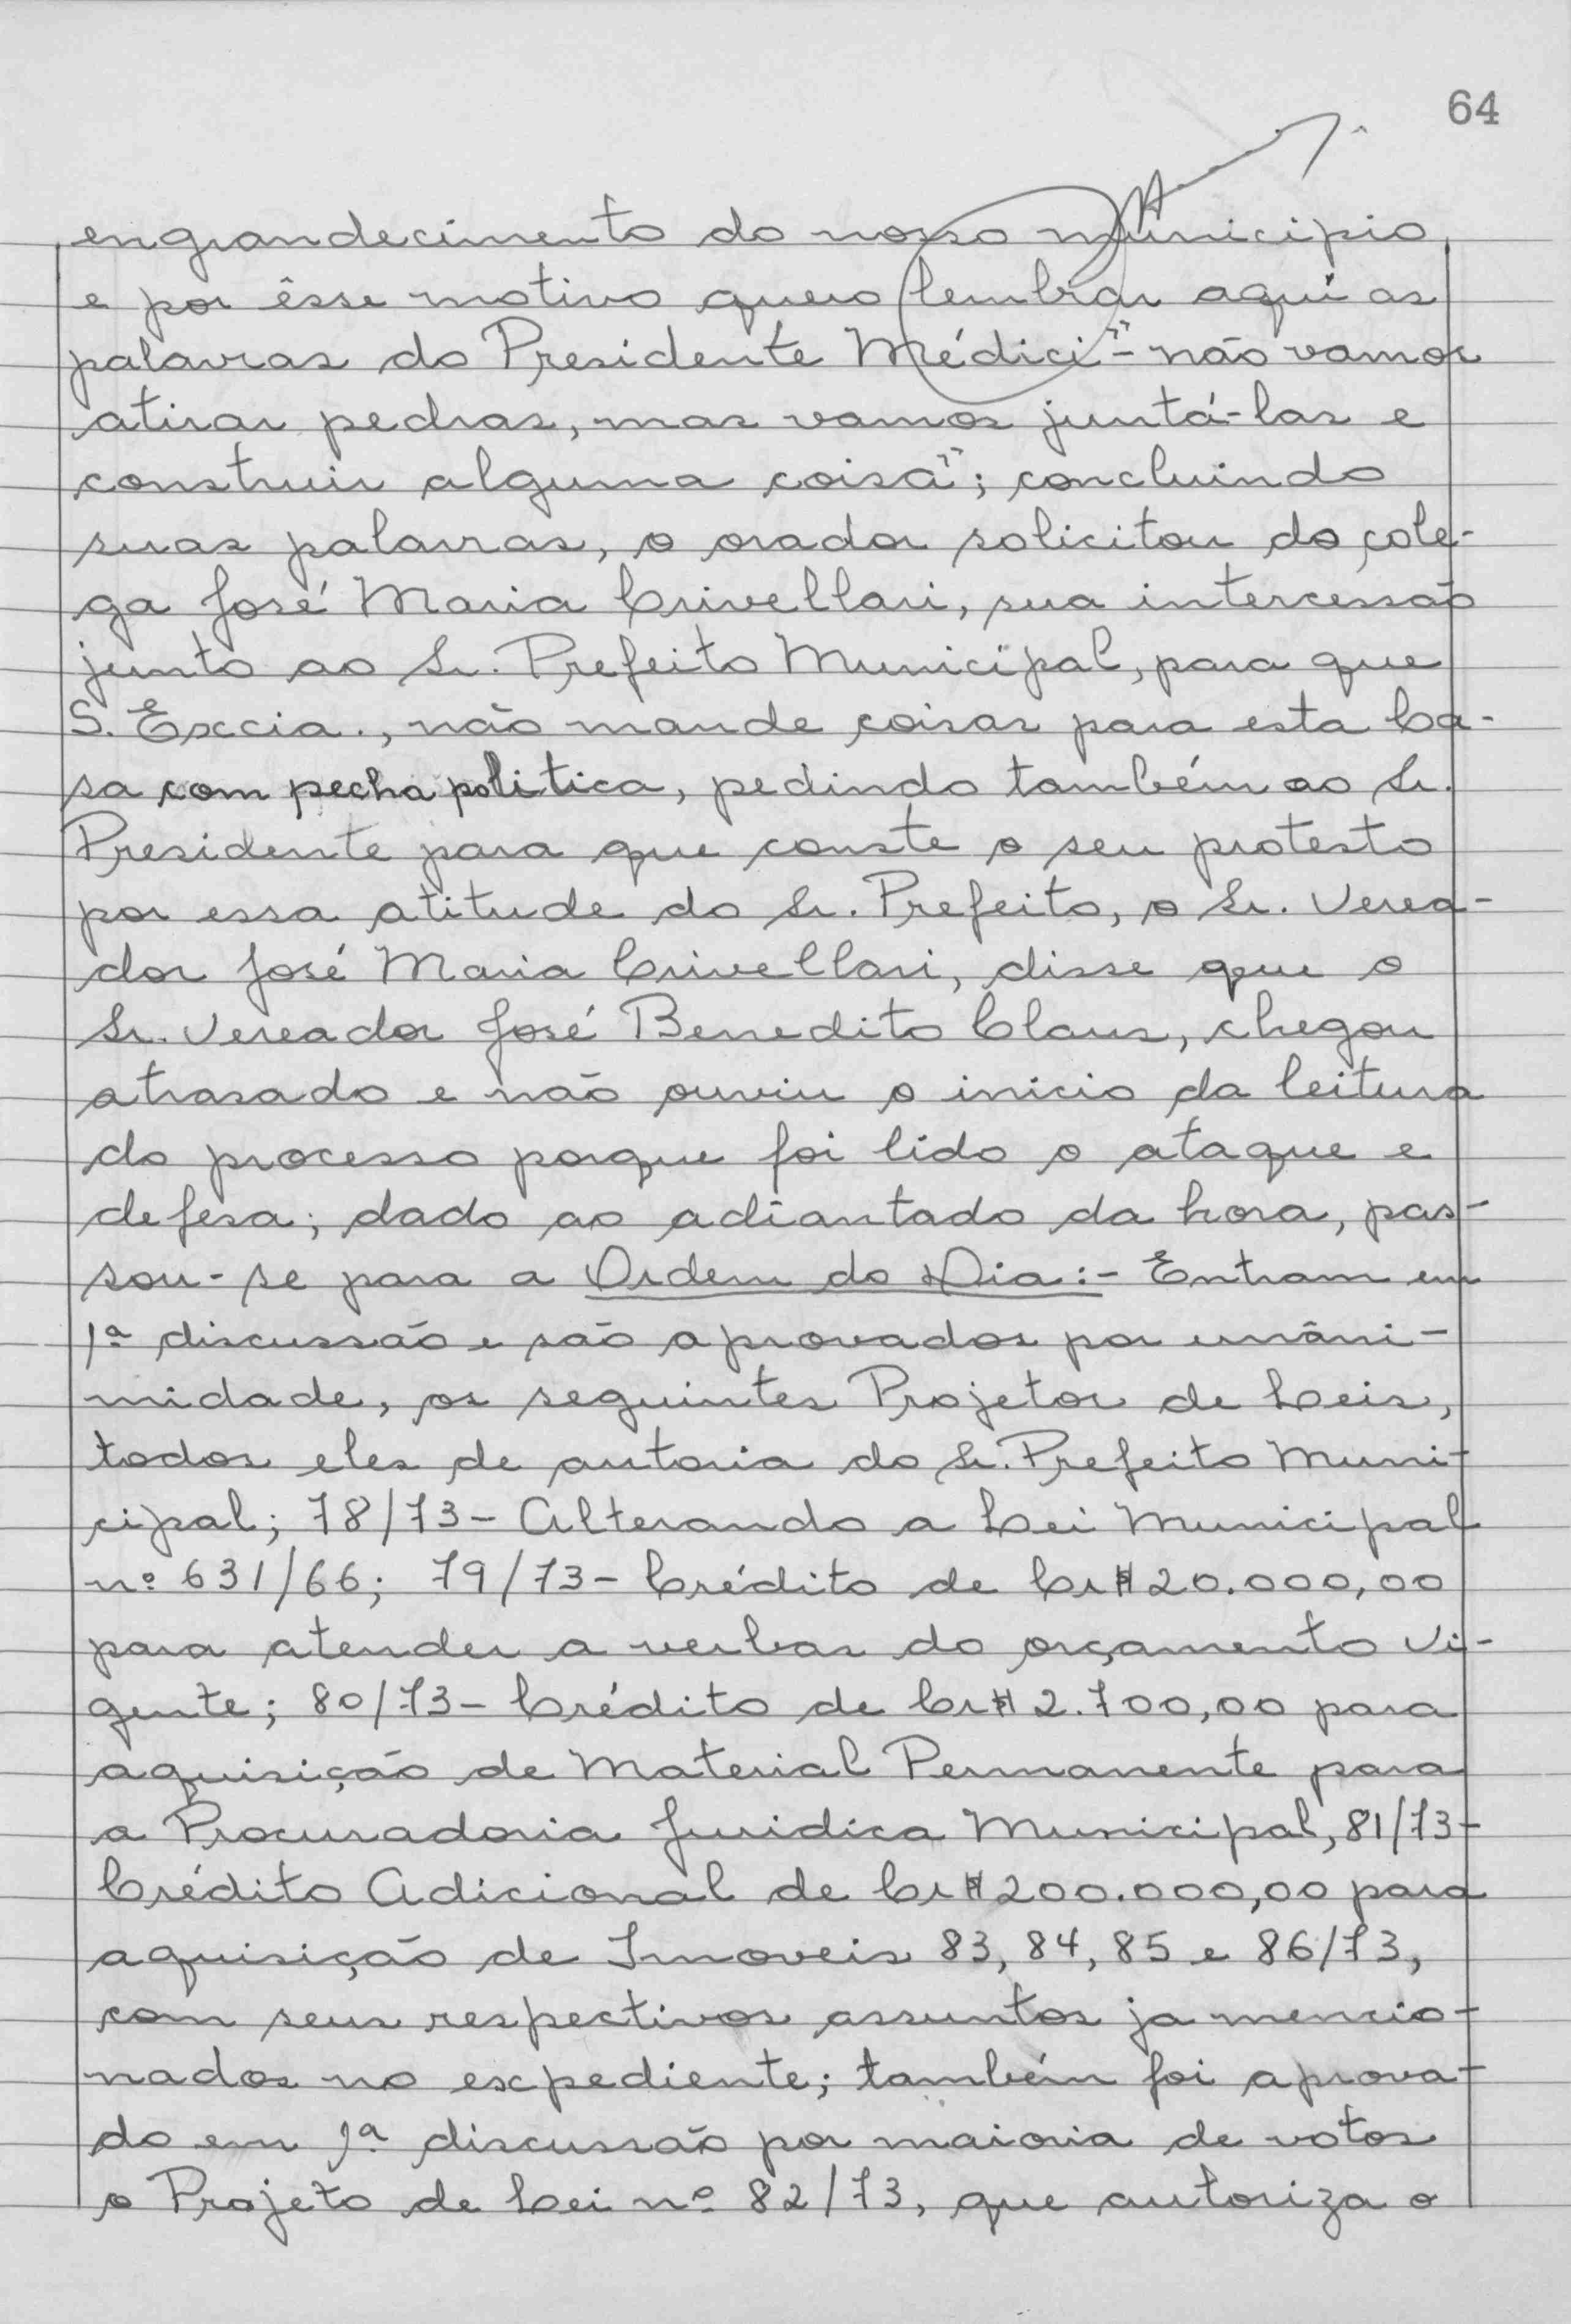 64
engrandecimento do nosso município
e por êsse motivo quero lembrar aqui as
palavras do Presidente Médici "- não vamos
atirar pedras, mas vamos juntá-las e
construir alguma coisa"; concluindo
suas palavras, o orador solicitou do cole-
ga José Maria Crivellari, sua intercessão
junto ao Sr. Prefeito Municipal, para que
S. Exccia., não mande coisas para esta Ca-
sa com pecha politica, pedindo também ao Sr.
Presidente para que conste o seu protesto
por essa atitude do Sr. Prefeito, o Sr. Verea-
dor José Maria Crivellari, disse que o
Sr. Vereador José Benedito Claus, chegou
atrasado e não ouviu o inicio da leitura
do processo porque foi lido o ataque e
defesa; dado ao adiantado da hora, pas-
sou-se para a Ordem do Dia:- Entram em
1ª discussão e são aprovados por unâni-
midade, os seguintes Projetos de Leis,
todos eles de autoria do Sr. Prefeito Muni-
cipal; 78/73- Alterando a Lei Municipal
nº 631/66; 79/73- Crédito de Cr$ 20.000,00
para atender a verbas do orçamento vi-
gente; 80/73- Crédito de Cr$ 2.700,00 para
aquisição de Material Permanente para
a Procuradoria Juridica Municipal, 81/73-
Crédito Adicional de Cr$ 200.000,00 para
aquisição de Imoveis 83, 84, 85 e 86/73,
com seus respectivos assuntos ja mencio-
nados no expediente; também foi aprova-
do em 1ª discussão por maioria de votos
o Projeto de Lei nº 82/73, que autoriza o